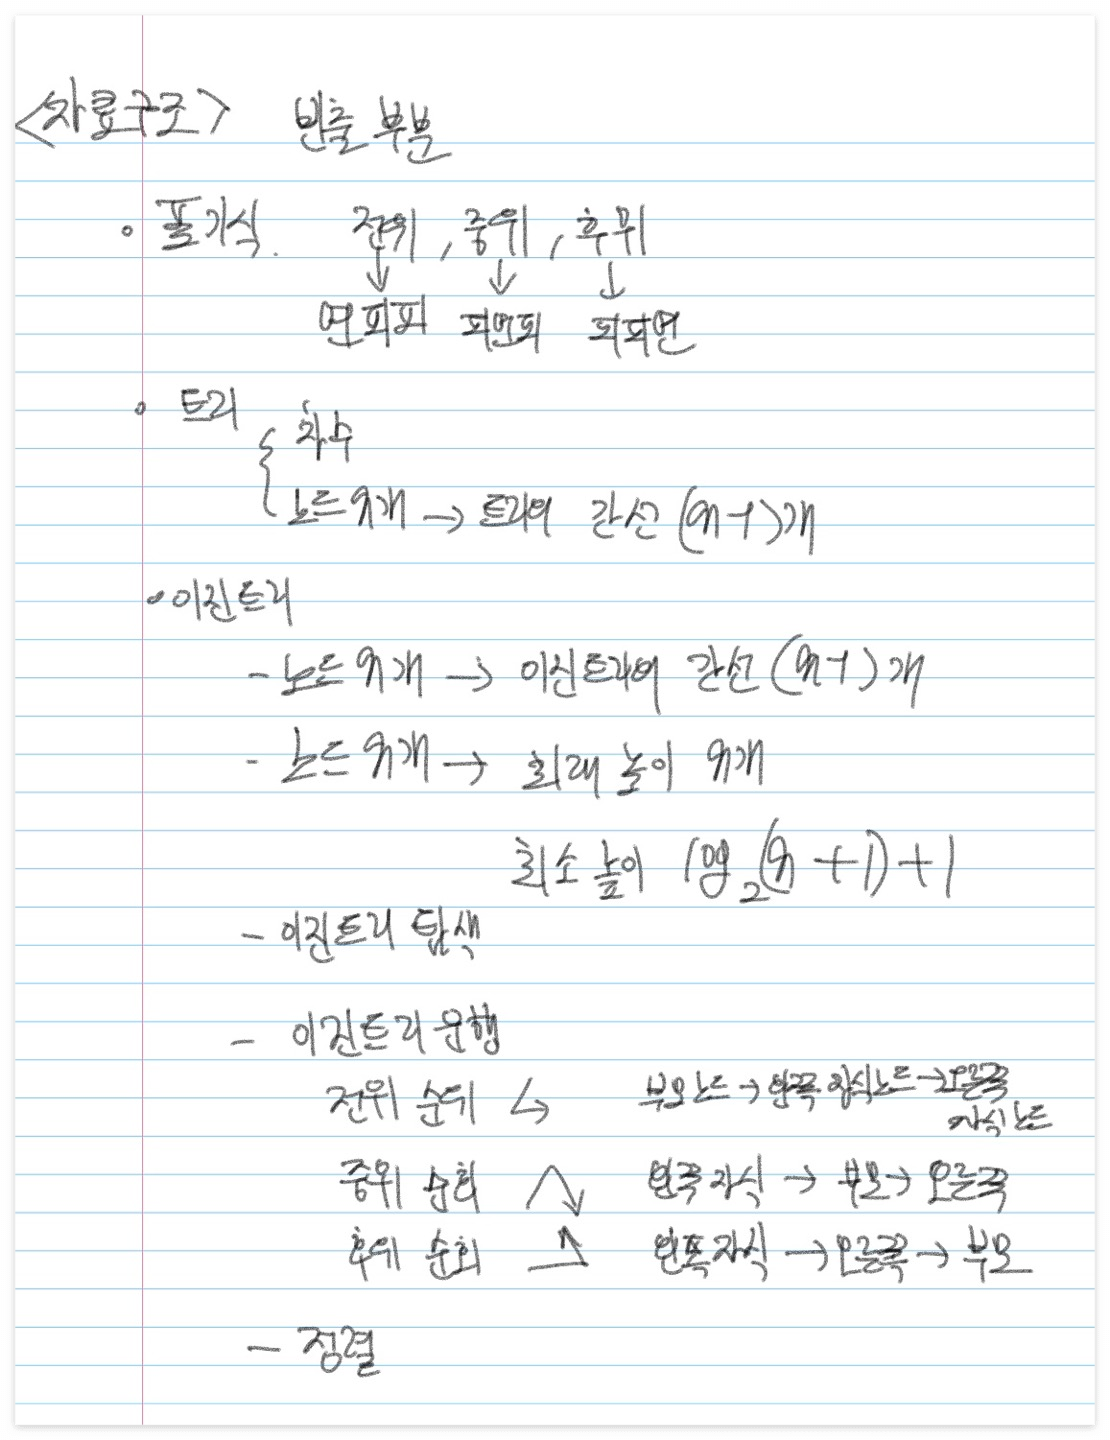 <자료구조> 빈출 부분
• 표기식. 전위, 중위, 후위
↓ ↓ ↓
연피피 피연피 피피연
• 트리
{ 차수
노드 n개 → 트리의 간선 (n-1)개
• 이진트리
- 노드 n개 → 이진트리의 간선 (n-1)개
- 노드 n개 → 최대 높이 n개
최소 높이 log₂(n+1)+1
- 이진트리 탐색
- 이진트리 운행
전위 순회 부모노드→왼쪽 자식노드→오른쪽
자식노드
중위 순회 왼쪽 자식 → 부모 → 오른쪽
후위 순회 왼쪽 자식 → 오른쪽 → 부모
- 정렬